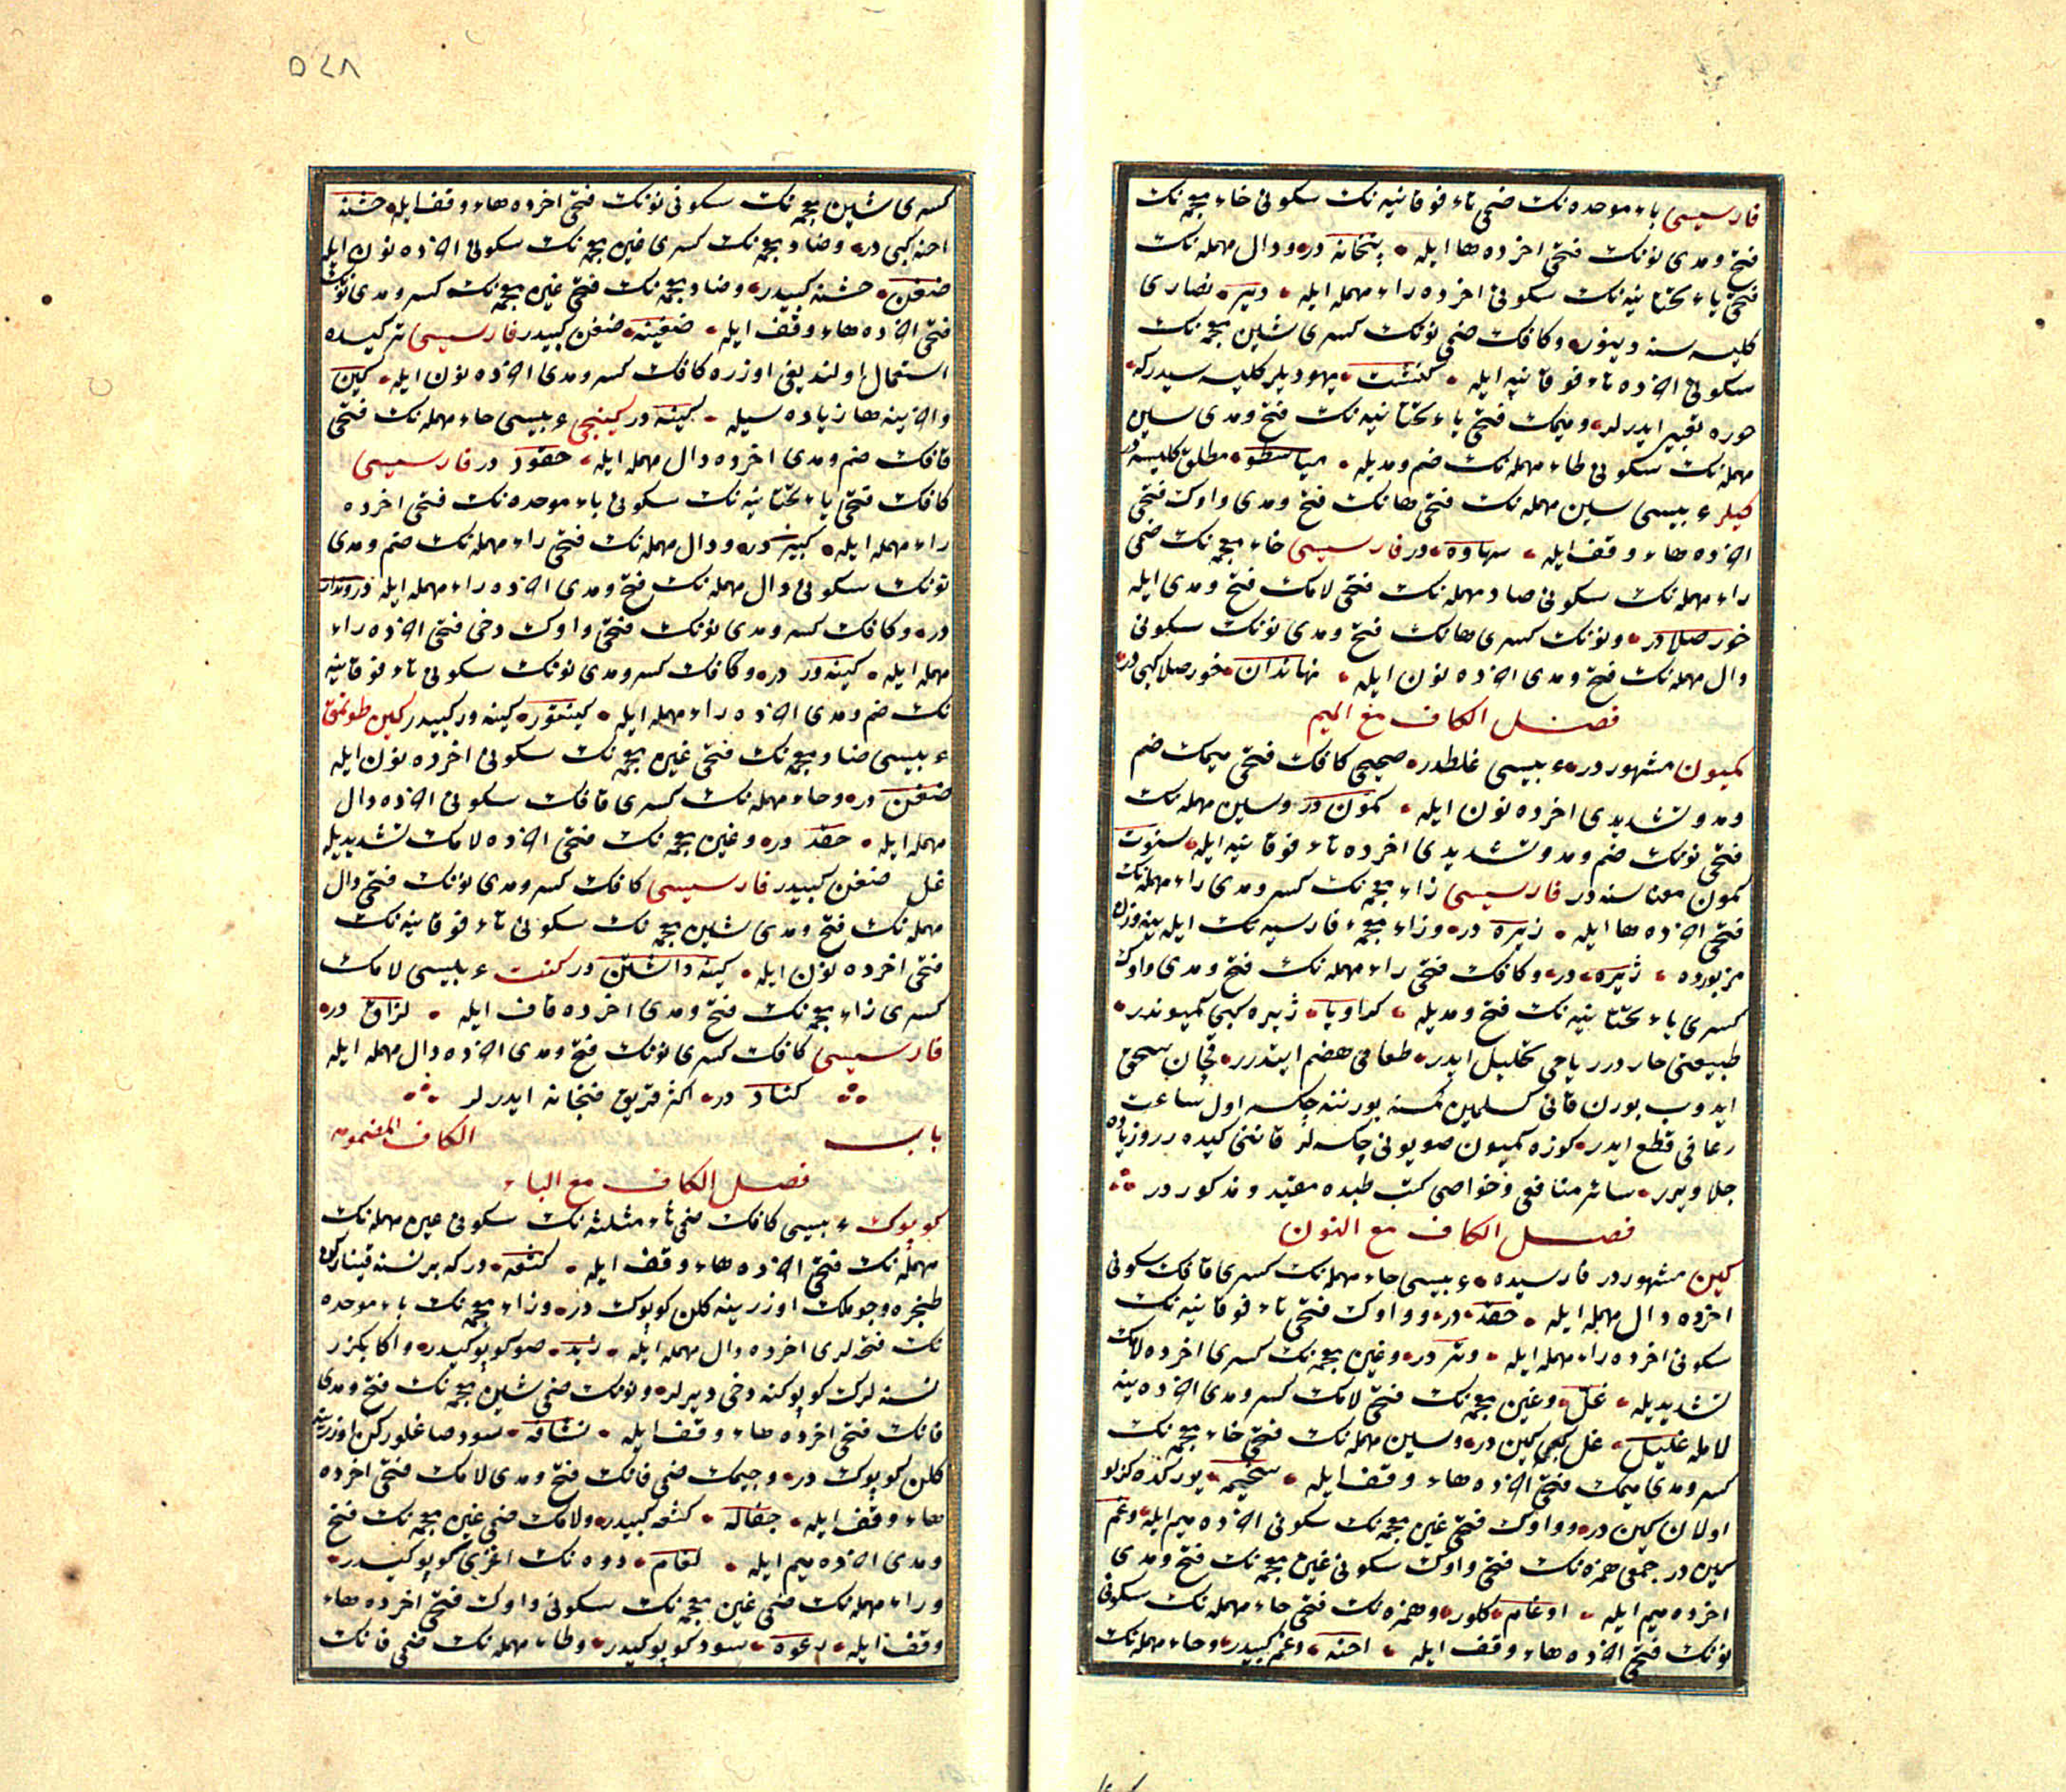 فارسیسی باء موحده نك ضمی تاء فوقانیه نك سكونی خاء معجمه نك
فتح ومدی نونك فتحی اخرده ها ایله بتخانه در ودال مهمله نك
فتحی یاء تحتانیه نك سكونی اخرده راء مهمله ایله دیر نصاری
كلیسه سنه دینور وكافك ضمی نونك كسری شین معجمه نك
سكونی اخرده تاء فوقانیه ایله كنشت یهودیلر كلیسه سیدركه
حوره تعبیر ایدرلر ومیمك فتحی یاء تحتانیه نك فتح ومدی سین
مهمله نك سكونی طاء مهمله نك ضم ومدیله میاسطو مطلق كلیسه در
كیلر عربیسی سین مهمله نك فتحی هانك فتح ومدی واوك فتحی
اخرده هاء وقف ایله سهاوه در فارسیسی خاء معجمه نك ضمی
راء مهمله نك سكونی صاد مهمله نك فتحی لامك فتح ومدی ایله
خورصلا در ونونك كسری هانك فتح ومدی نونك سكونی
دال مهمله نك فتح ومدی اخرده نون ایله نهاندان خورصلا كبی در
فصل الكاف مع المیم
كمیون مشهور در عربیسی غلطدر صحیحی كافك فتحی میمك ضم
ومد وتشدیدی اخرده نون ایله كمون در وسین مهمله نك
فتحی نونك ضم ومد وتشدیدی اخرده تاء فوقانیه ایله سنوت
كمون معناسنه در فارسیسی زاء معجمه نك كسر ومدی راء مهمله نك
فتحی اخرده ها ایله زیره در وزاء معجمۀ فارسیه نك ایله ینه وزن
مزبورده ژیره در وكافك فتحی راء مهمله نك فتح ومدی واوك
كسری یاء تحتانیه نك فتح ومدیله كراویا ژیره كبی كمیوندر
طبیعتی حار در ریاحی تحلیل ایدر طعامی هضم ایتدرر قچان سحق
ایدوب بورن قانی كسلمین كمسنه بورننه چكسه اول ساعت
رعافی قطع ایدر كوزه كمیون صویونی چكسه لر قاننی كیده رر وزیاده
جلا ویرر سائر منافعی وخواصی كتب طبده مقید ومذكور در
فصل الكاف مع النون
كین مشهور در فارسیده عربیسی حاء مهمله نك كسری قافك سكونی
اخرده دال مهمله ایله حقد در وواوك فتحی تاء فوقانیه نك
سكونی اخرده راء مهمله ایله وتر در وغین معجمه نك كسری اخرده لامك
تشدیدیله غل وغین معجمه نك فتحی لامك كسر ومدی اخرده ینه
لامله غلیل غل كبی كین در وسین مهمله نك فتحی خاء معجمه نك
كسر ومدی میمك فتحی اخرده هاء وقف ایله سخیمه یوركده كزلو
اولان كین در وواوك فتحی غین معجمه نك سكونی اخرده میم ایله وغم
كین در جمعی همزه نك فتحی واوك سكونی غین معجمه نك فتح ومدی
اخرده میم ایله اوغام كلور وهمزه نك فتحی حاء مهمله نك سكونی
نونك فتحی اخرده هاء وقف ایله احنه وغم كبیدر وحاء مهمله نك
٥٤٨
كسری شین معجمه نك سكونی نونك فتحی اخرده هاء وقف ایله حشنه
احنه كبی در وضاد معجمه نك كسری غین معجمه نك سكونی اخرده نون ایله
ضغن حشنه كبیدر وضاد معجمه نك فتحی غین معجمه نك كسر ومدی نونك
فتحی اخرده هاء وقف ایله ضغینه ضغن كبیدر فارسیسی تركیده
استعمال اولندیغی اوزره كافك كسر ومدی اخرده نون ایله كین
واخرینه ها زیاده سیله كینه در كینجی عربیسی حاء مهمله نك فتحی
قافك ضم ومدی اخرده دال مهمله ایله حقود در فارسیسی
كافك فتحی یاء تحتانیه نك سكونی باء موحده نك فتحی اخرده
راء مهمله ایله كیبر در ودال مهمله نك فتحی راء مهمله نك ضم ومدی
نونك سكونی دال مهمله نك فتح ومدی اخرده راء مهمله ایله دروندار
در وكافك كسر ومدی نونك فتحی واوك دخی فتحی اخرده راء
مهمله ایله كینه ور در وكافك كسر ومدی نونك سكونی تاء فوقانیه
نك ضم ومدی اخرده راء مهمله ایله كینتور كینه ور كبیدر كین طوتمق
عربیسی ضاد معجمه نك فتحی غین معجمه نك سكونی اخرده نون ایله
ضغن در وحاء مهمله نك كسری قافك سكونی اخرده دال
مهمله ایله حقد در وغین معجمه نك فتحی اخرده لامك تشدیدیله
غل ضغن كبیدر فارسیسی كافك كسر ومدی نونك فتحی دال
مهمله نك فتح ومدی شین معجمه نك سكونی تاء فوقانیه نك
فتحی اخرده نون ایله كینه داشتن در كنت عربیسی لامك
كسری زاء معجمه نك فتح ومدی اخرده قاف ایله لزاق در
فارسیسی كافك كسری نونك فتح ومدی اخرده دال مهمله ایله
كناد در اكثر فنجانه ایدرلر
باب الكاف المضمومه
فصل الكاف مع الباء
كوپوك عربیسی كافك ضمی ثاء مثلثه نك سكونی عین مهمله نك
مهمله نك فتحی اخرده هاء وقف ایله كثعه در كه بر نسنه قینارکن
طنجره وجوملك اوزرینه كلن كوپوك در وزاء معجمه نك باء موحده
نك فتحه لری اخرده دال مهمله ایله زبد صو كوپوكیدر واكا بكزر
نسنه لرك كوپوكنه دخی دیرلر ونونك ضمی شین معجمه نك فتح ومدی
فانك فتحی اخرده هاء وقف ایله نشافه سود صاغلوركن اوزرینه
كلن كوپوك در وجیمك ضمی فانك فتح ومدی لامك فتحی اخرده
هاء وقف ایله جفاله كثعه كبیدر ولامك ضمی غین معجمه نك فتح
ومدی اخرده میم ایله لغام دوه نك اغزی كوپوكیدر
وراء مهمله نك ضمی غین معجمه نك سكونی واوك فتحی اخرده هاء
وقف ایله رغوه سود كوپوكیدر وطاء مهمله نك ضمی فانك